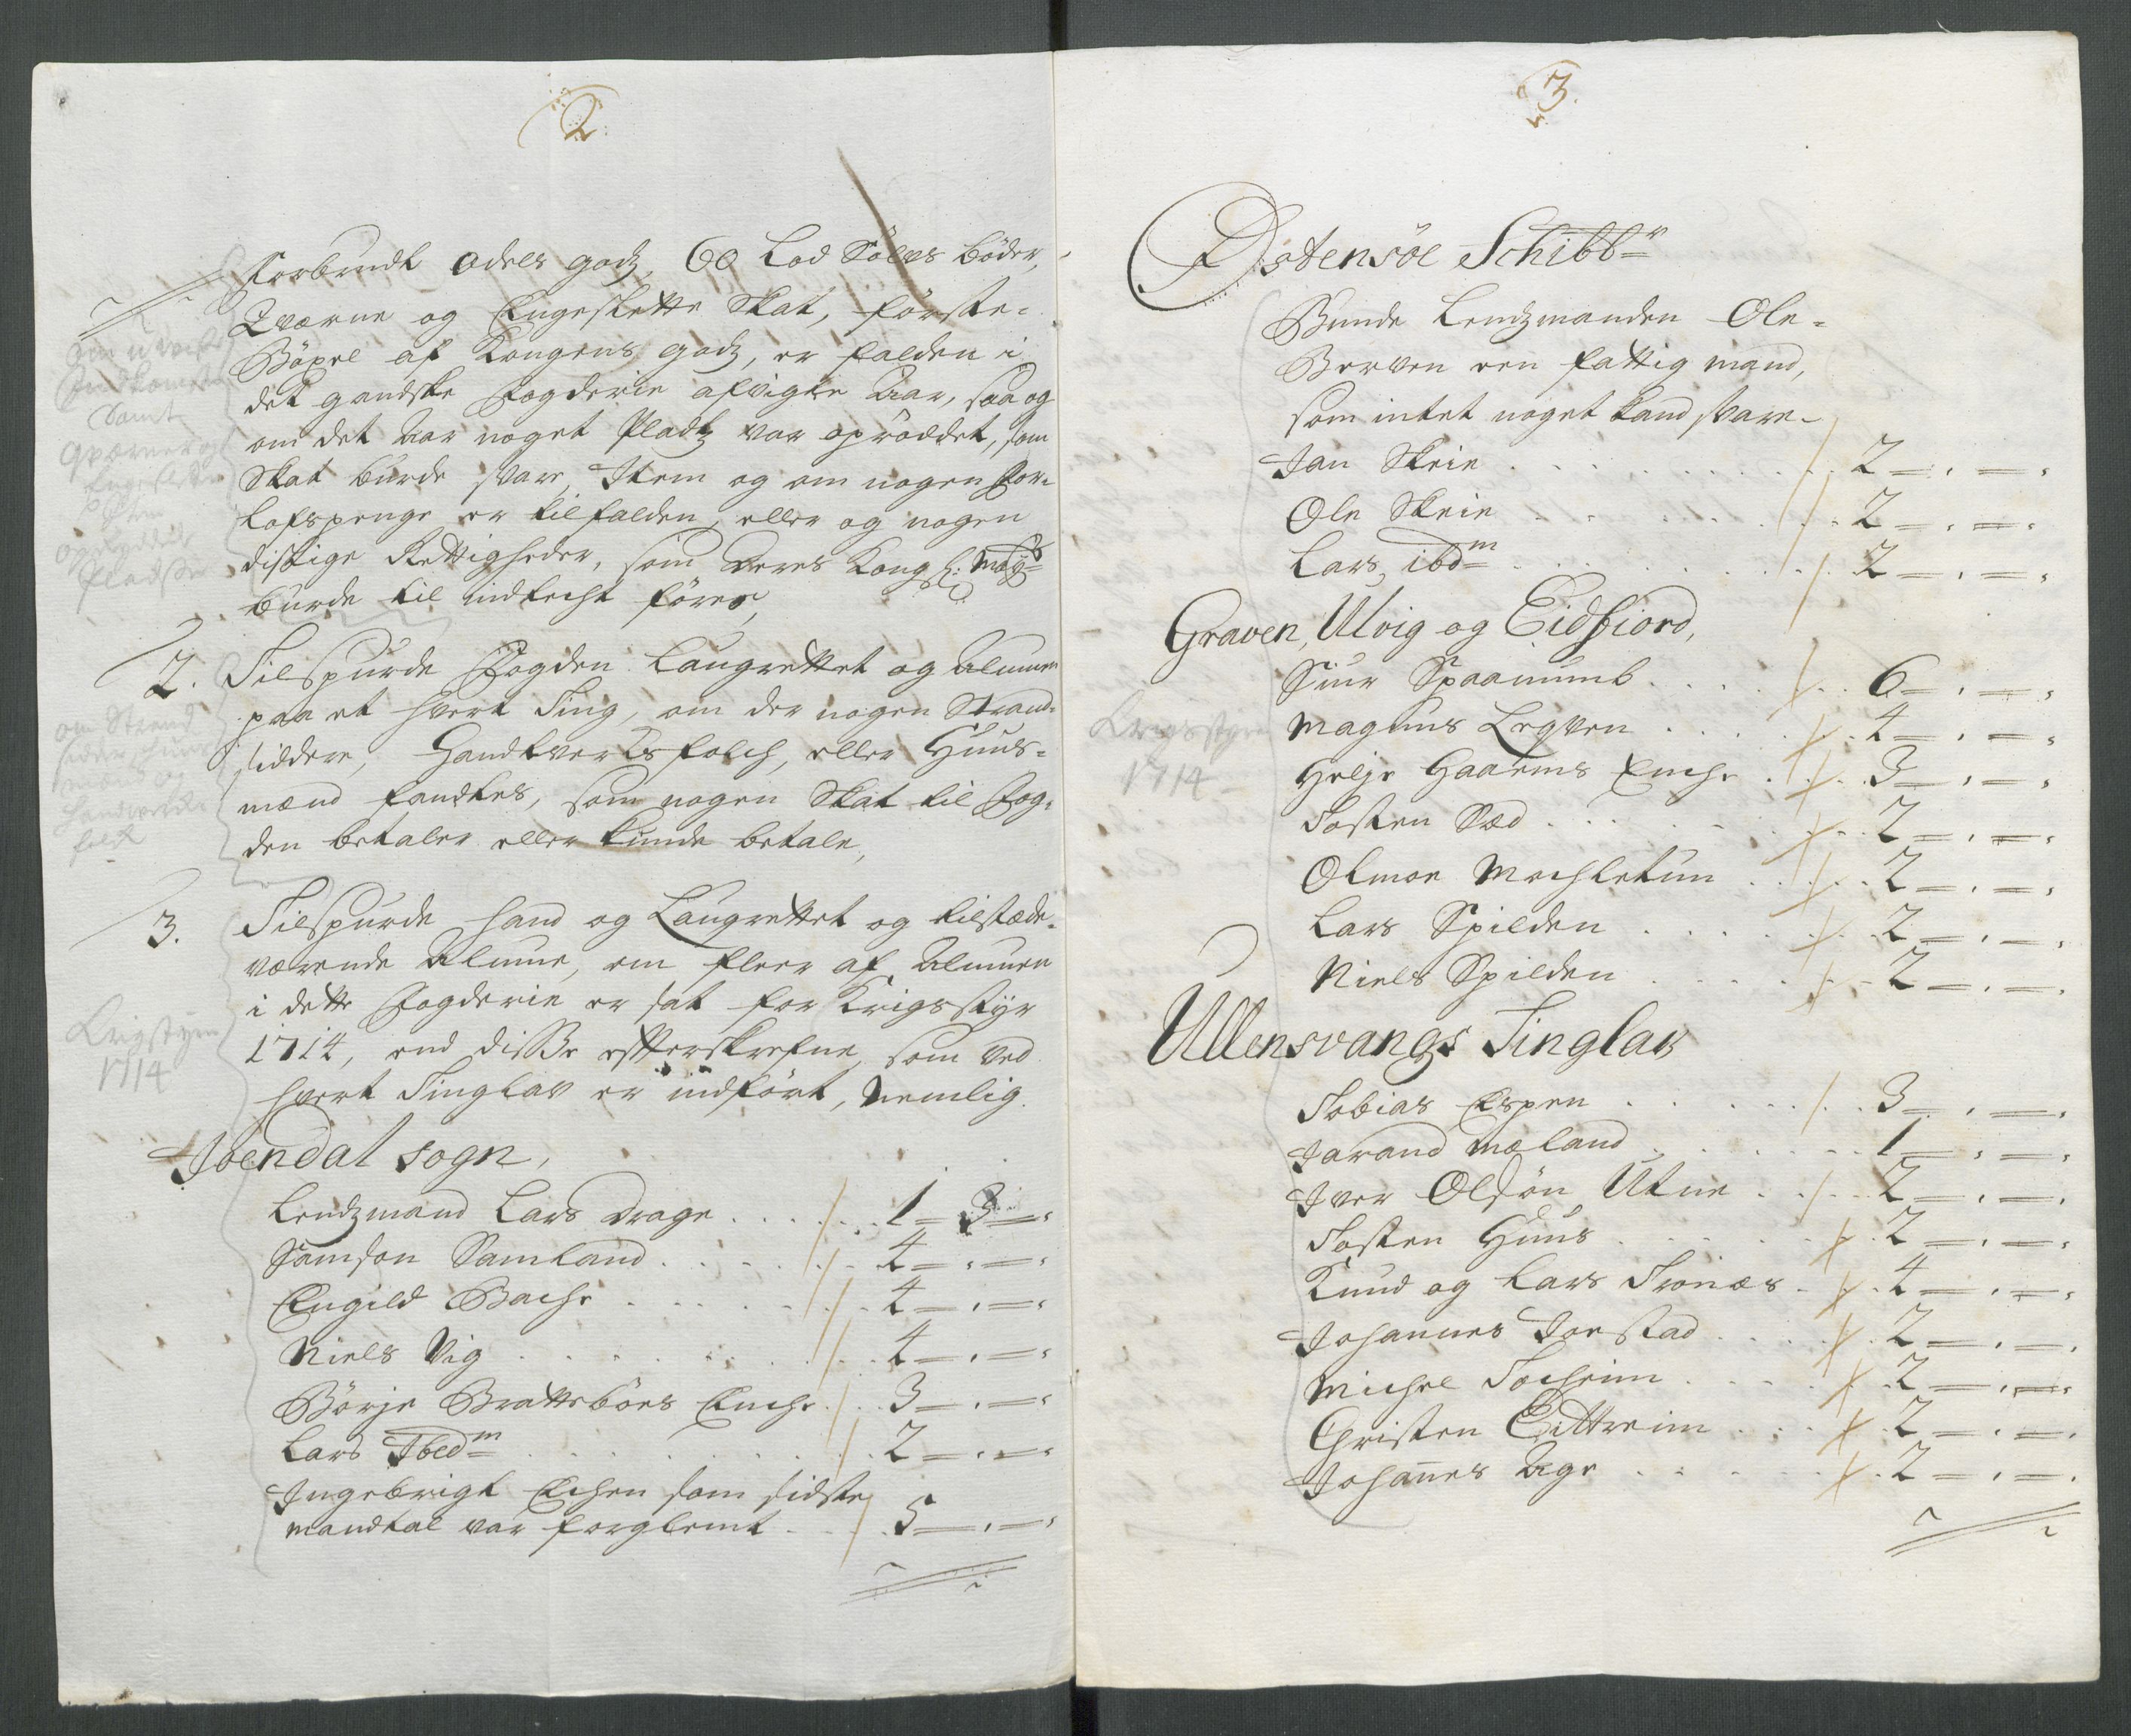 2
Forbrudt odels godz, 60 Lod Sölvs böder,
Qværne og Engeslette Skat, förste-
Böxel af Kongens godz, er falden i
det gandske fogderie afvigte Aar, saa og
om det Aar noget Pladtz var opröddet, som
Skat burde svare, Item og om nogen For-
lofspenge er tilfalden, eller og nogen
distige Rettigheder, som Deres Kongl: May:ts
burde til indtecht föres,
samt
2. Tilspurde Fogden Laugrettet og Almuen
paa et hvert Ting, om der nogen Strand-
siddere, Handtverksfolch, eller Huus-
mænd fandtes, som nogen Skat til Fog-
den betaler eller kunde betale,
om Strand
sidder, huus
mænd og
handverks
folk
3. Tilspurde hand og Laugrettet og tilstæde-
værende Almue, om fleer af Almuen
i dette Fogderie er sat for Krigsstyr
1714, end disse efterskrefne, som ved
hvert Tinglav er indfört, Nemlig.
Krigstyren
1714
Joendal sogn,
Lendzmand Lars Drage 1 - 3 -
Samson Samland 4 - . -
Engild Bache 4 - . -
Niels Vig 4 - . -
Börje Bratteböes Enche 3 - . -
Lars Ibedm 2 - . -
Ingebrigt Echen som sidste
mandtal var forglemt 5 - . -
3.
Östensöe Schibbr
Bunde Lendzmanden Ole
Berven een fattig mand,
som intet noget kand svare
Jan Skeie 2 - . -
Ole Skeie 2 - . -
Lars ibdm 2 - . -
Graven, Ulvig og Eidfiord,
Siur Spaanumb 6 - . -
Krigsstyren
1714
Magnus Legven 4 - . -
Helje Haaems Enche 3 - . -
Tosten Sæd 2 - . -
Olmoe Mechletun 2 - . -
Lars Spilden 2 - . -
Niels Spilden 2 - . -
Ullensvangs Tinglav
Tobias Espen 3 - . -
Jarand Mæland 1 - . -
Iver Olsön Utne 2 - . -
Tosten Huus 2 - . -
Knud og Lars Tronæs 4 - . -
Johannes Joestad 2 - . -
Michel Tocheim 2 - . -
Christen Eittreim 2 - . -
Johannes Age 2 - . -